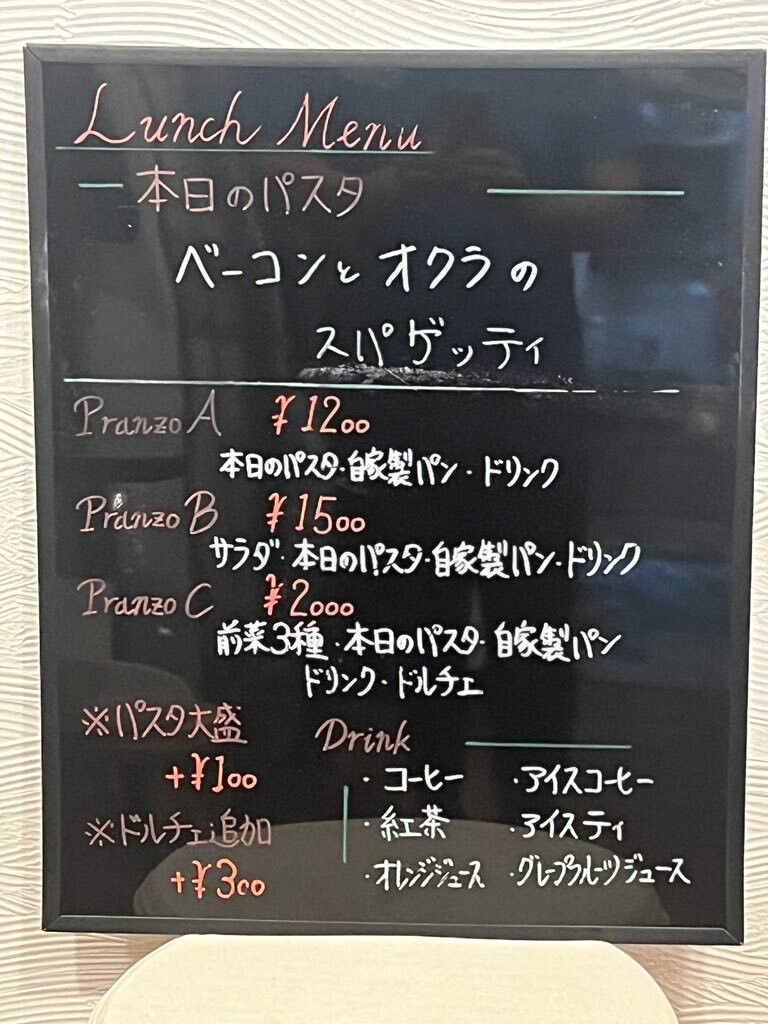 Lunch Menu
本日のパスタ
ベーコンとオクラの
スパゲッティ
Pranzo A ¥1200
本日のパスタ・自家製パン・ドリンク
Pranzo B ¥1500
サラダ・本日のパスタ・自家製パン・ドリンク
Pranzo C ¥2000
前菜3種・本日のパスタ・自家製パン
ドリンク・ドルチェ
※パスタ大盛
+¥100
※ドルチェ追加
+¥300
Drink
・コーヒー ・アイスコーヒー
・紅茶 ・アイスティ
・オレンジジュース ・グレープフルーツジュース